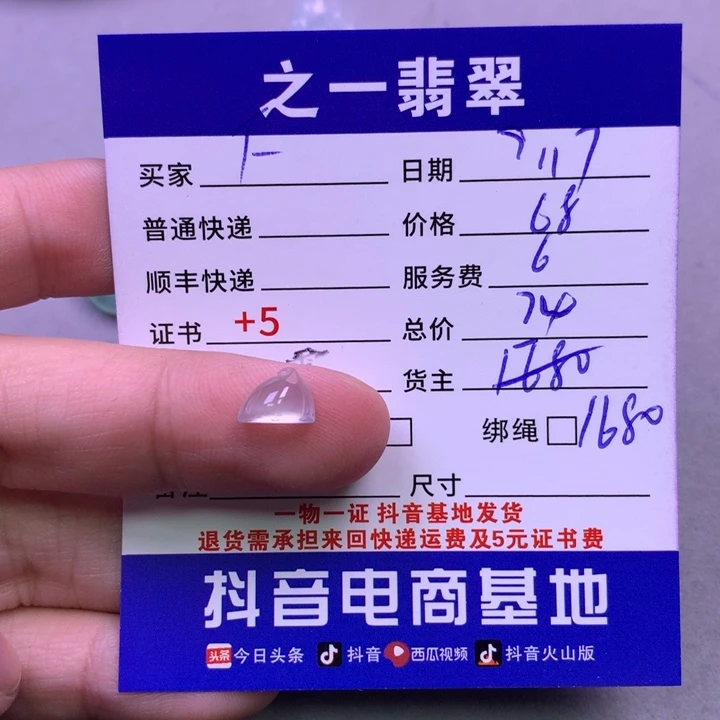 之一翡翠
买家 日期 11
普通快递 价格 68
顺丰快递 服务费 6
证书 +5 总价 74
货主 1680
绑绳 1680
尺寸
一物一证 抖音基地发货
退货需承担来回快递运费及5元证书费
抖音电商基地
头条 今日头条 抖音 西瓜视频 抖音火山版